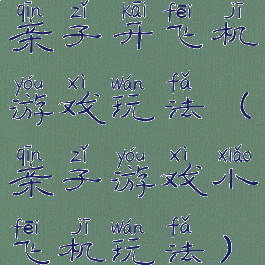 qīn zǐ kāi fēi jī
亲子开飞机
yóu xì wán fǎ
游戏玩法（
qīn zǐ yóu xì xiǎo
亲子游戏小
fēi jī wán fǎ
飞机玩法）